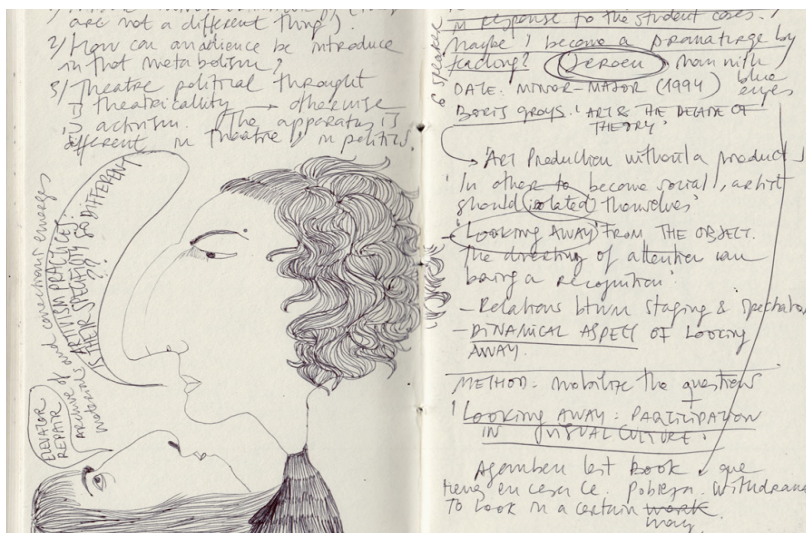 are not a different thing?).
2/ How can an audience be introduce
in that metabolism?
3/ Theatre political thought
is theatricality → otherwise
is activism. The apparatus is
different in theatre / in politics.
and conections emerges
ARTIVISM PRACTICES:
IS THEIR SPECIFICITY SO DIFFERENT
??
ELEVATOR
REPAIR
Archive of
materials
speaker
in response to the student cases.
Maybe I become a dramaturge by
teaching? Jeroen man with
blue
eyes
DATE: MINOR-MAJOR (1994)
BORIS GROYS. 'ART & THE DECADE OF
THEORY'
'Art Production without a product'
'In other to become social, artist
should isolated themselves'
- 'LOOKING AWAY' FROM THE OBJECT.
The directing of attention can
bring a recognition'.
- Relations btwn staging & spectator
- DINAMICAL ASPECT OF LOOKING
AWAY.
METHOD: mobilize the questions
'LOOKING AWAY: PARTICIPATION
IN VISUAL CULTURE.'
Agamben last Book. que
tienes en casa Ce. Pobreza. Withdraw
To Look in a certain work
way